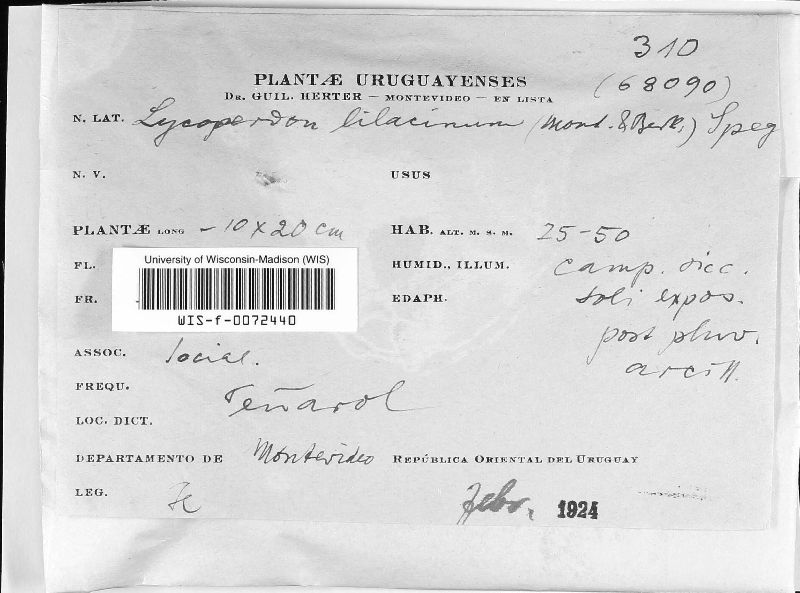 310
PLANTÆ URUGUAYENSES (68090)
DR. GUIL. HERTER — MONTEVIDEO — EN LISTA
N. LAT. Lycoperdon lilacinum (Mont. & Berk.) Speg
N. V. USUS
PLANTÆ LONG – 10 x 20 cm HAB. ALT. M. S. M. 25-50
FL. HUMID., ILLUM. camp. sicc.
FR. EDAPH. soli expos.
University of Wisconsin-Madison (WIS)
WIS-f-0072440
post pluv.
ASSOC. social. arcill.
FREQU.
LOC. DICT. Peñarol
DEPARTAMENTO DE Montevideo REPÚBLICA ORIENTAL DEL URUGUAY
LEG. Febr. 1924